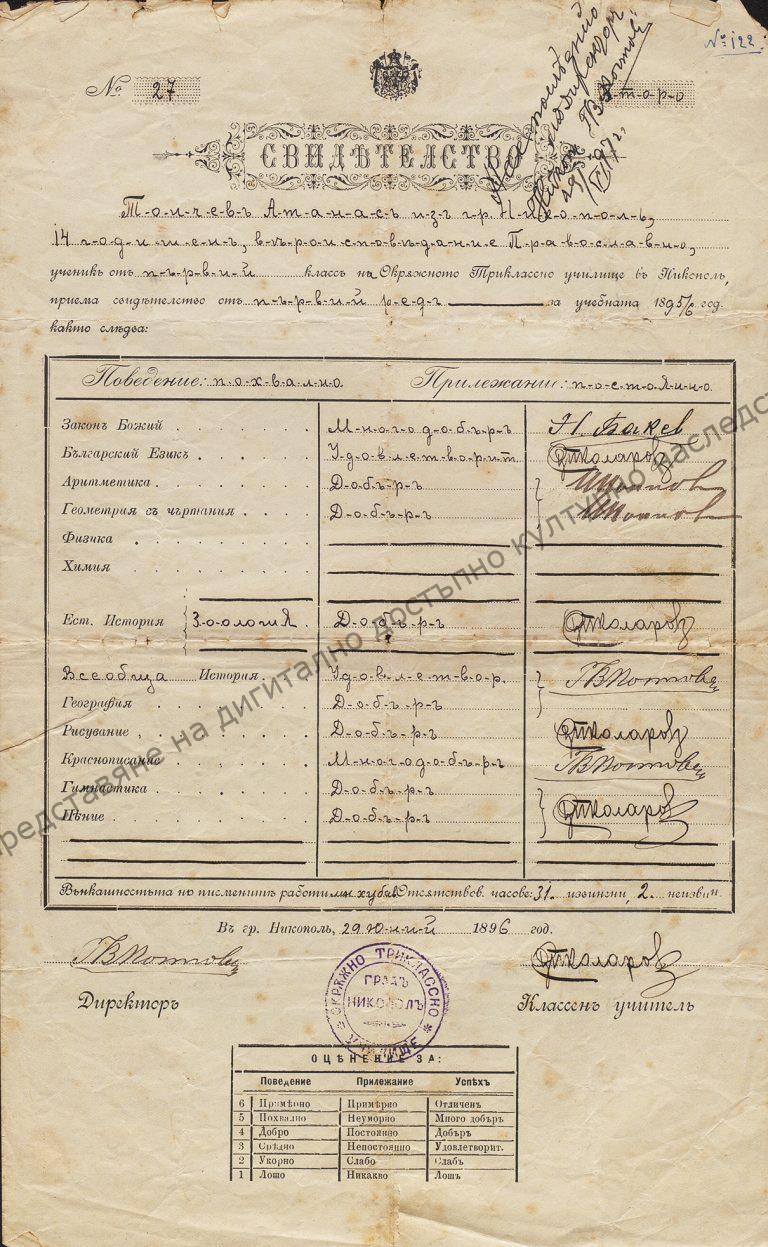 № 122
№ 27
т-о-р-о
СВИДѢТЕЛСТВО
Т-о-н-чев-ъ А-т-а-н-а-с-ъ изъ гр. Н-и-к-о-п-о-л-ь,
14 г-о-д-и-ш-ен-ъ, в-ѣ-р-о-и-с-п-о-в-ѣ-д-а-н-и-е П-р-а-в-о-с-л-а-в-н-о,
ученикъ отъ п-ъ-р-в-и-й классъ на Окрѫжното Триклассно училище въ Никополь,
приема свидѣтелство отъ п-ъ-р-в-и-й р-е-д-ъ за учебната 1895/6 год.
както слѣдва:
Поведение: п-о-х-в-а-л-н-о. Прилежание: п-о-с-т-о-я-н-н-о.
Законъ Божий М-н-о-г-о д-о-б-ъ-р-ъ Н. Бакев
Българский Езикъ У-д-о-в-л-е-т-в-о-р-и-т. Коларов
Аритметика Д-о-б-ъ-р-ъ
Геометрия съ чъртания Д-о-б-ъ-р-ъ
Физика
Химия
Ест. История З-о-о-л-о-г-и-я. Д-о-б-ъ-р-ъ Коларов
Всеобща История. У-д-о-в-л-е-т-в-о-р. ГВКотовъ
География Д-о-б-ъ-р-ъ
Рисувание Д-о-б-ъ-р-ъ Коларов
Краснописание М-н-о-г-о д-о-б-ъ-р-ъ
Гимнастика Д-о-б-ъ-р-ъ
Пѣние Д-о-б-ъ-р-ъ Коларов
Вънкашностьта на писменитѣ работи хубав Отсѫтствов. часове: 31. извинени, 2. неизвин.
Въ гр. Никополь, 29 Ю-н-и-й 1896 год.
Коларов
Директоръ Классенъ учитель
ОКРѪЖНО ТРИКЛАССНО УЧИЛИЩЕ
ГРАДЪ
НИКОПОЛЪ
ОЦѢНЕНИЕ ЗА:
Поведение Прилежание Успѣхъ
6 Примѣрно Примѣрно Отличенъ
5 Похвално Неуморно Много добъръ
4 Добро Постоянно Добъръ
3 Срѣдно Непостоянно Удовлетворит.
2 Укорно Слабо Слабъ
1 Лошо Никакво Лошъ
представяне на дигитално достъпно културно наследств